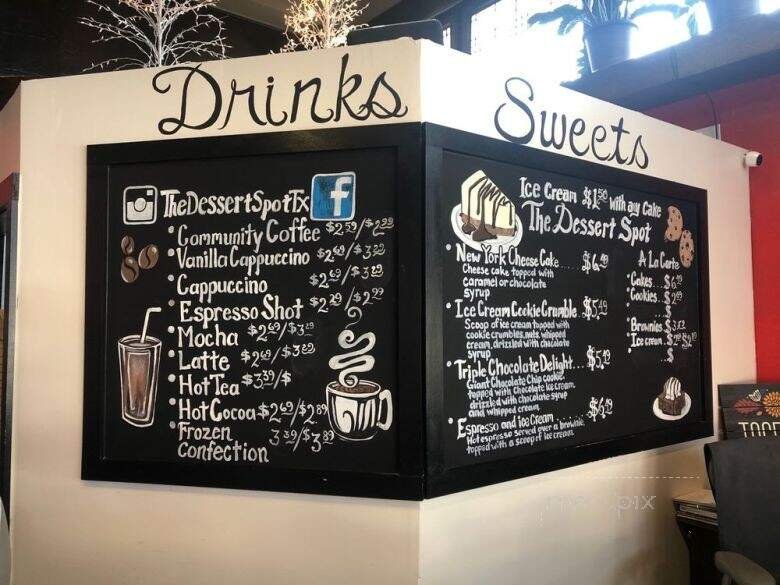 Drinks
TheDessertSpotTx f
Community Coffee $2.59/$2.99
Vanilla Cappuccino $2.69/$3.29
Cappuccino $2.69/$3.29
Espresso Shot $2.29/$2.99
Mocha $2.69/$3.29
Latte $2.69/$3.29
Hot Tea $3.39/$
Hot Cocoa $2.69/$2.89
Frozen 3.39/$3.89
Confection
Sweets
Ice Cream $1.50 with any Cake
The Dessert Spot
New York Cheese Cake.... $6.49
Cheese cake topped with
caramel or chocolate
syrup
Ice Cream Cookie Crumble.. $5.49
Scoop of ice cream topped with
cookie crumbles, nuts, whipped
cream, drizzled with chocolate
syrup
Triple Chocolate Delight.... $5.49
Giant Chocolate Chip cookie
topped with Chocolate Ice cream,
drizzled with chocolate syrup
and whipped cream.
Espresso and Ice Cream..... $6.49
Hot espresso served over a brownie,
topped with a scoop of ice cream.
A La Carte
Cakes....$6
Cookies...$2
$
$
Brownies $3
Ice cream
$